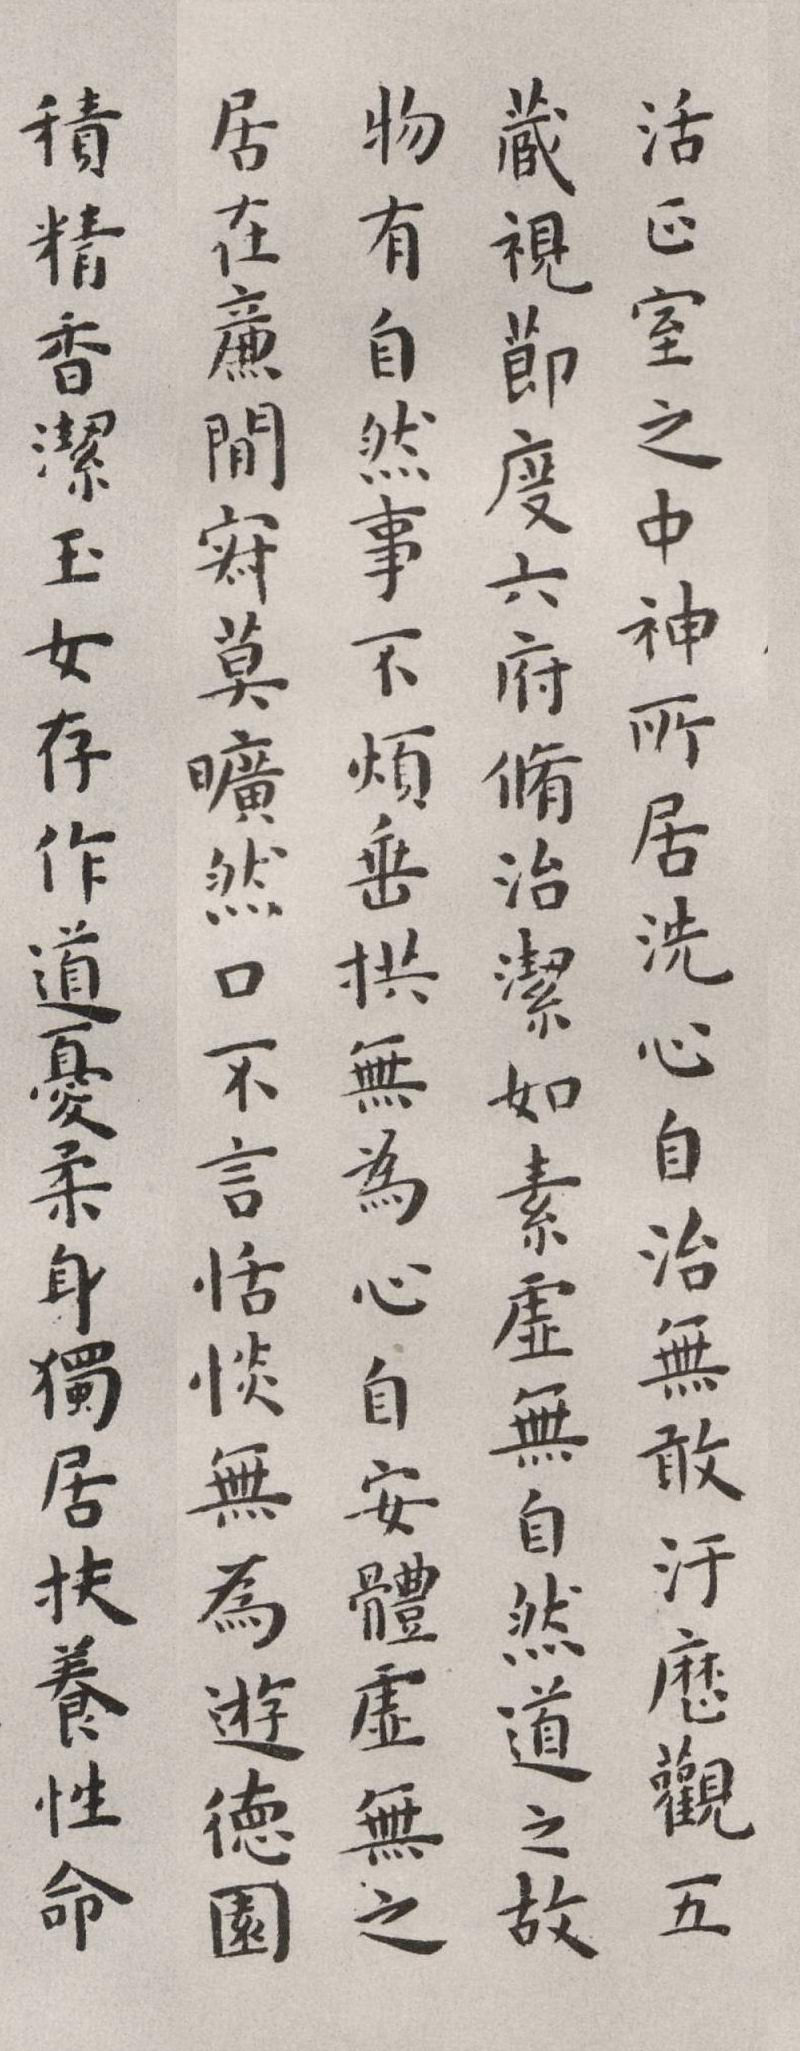 活正室之中神所居洗心自治無敢汙歷觀五
藏視節度六府脩治潔如素虛無自然道之故
物有自然事不煩垂拱無為心自安體虛無之
居在廉間寂莫曠然口不言恬惔無為遊德園
積精香潔玉女存作道憂柔身獨居扶養性命